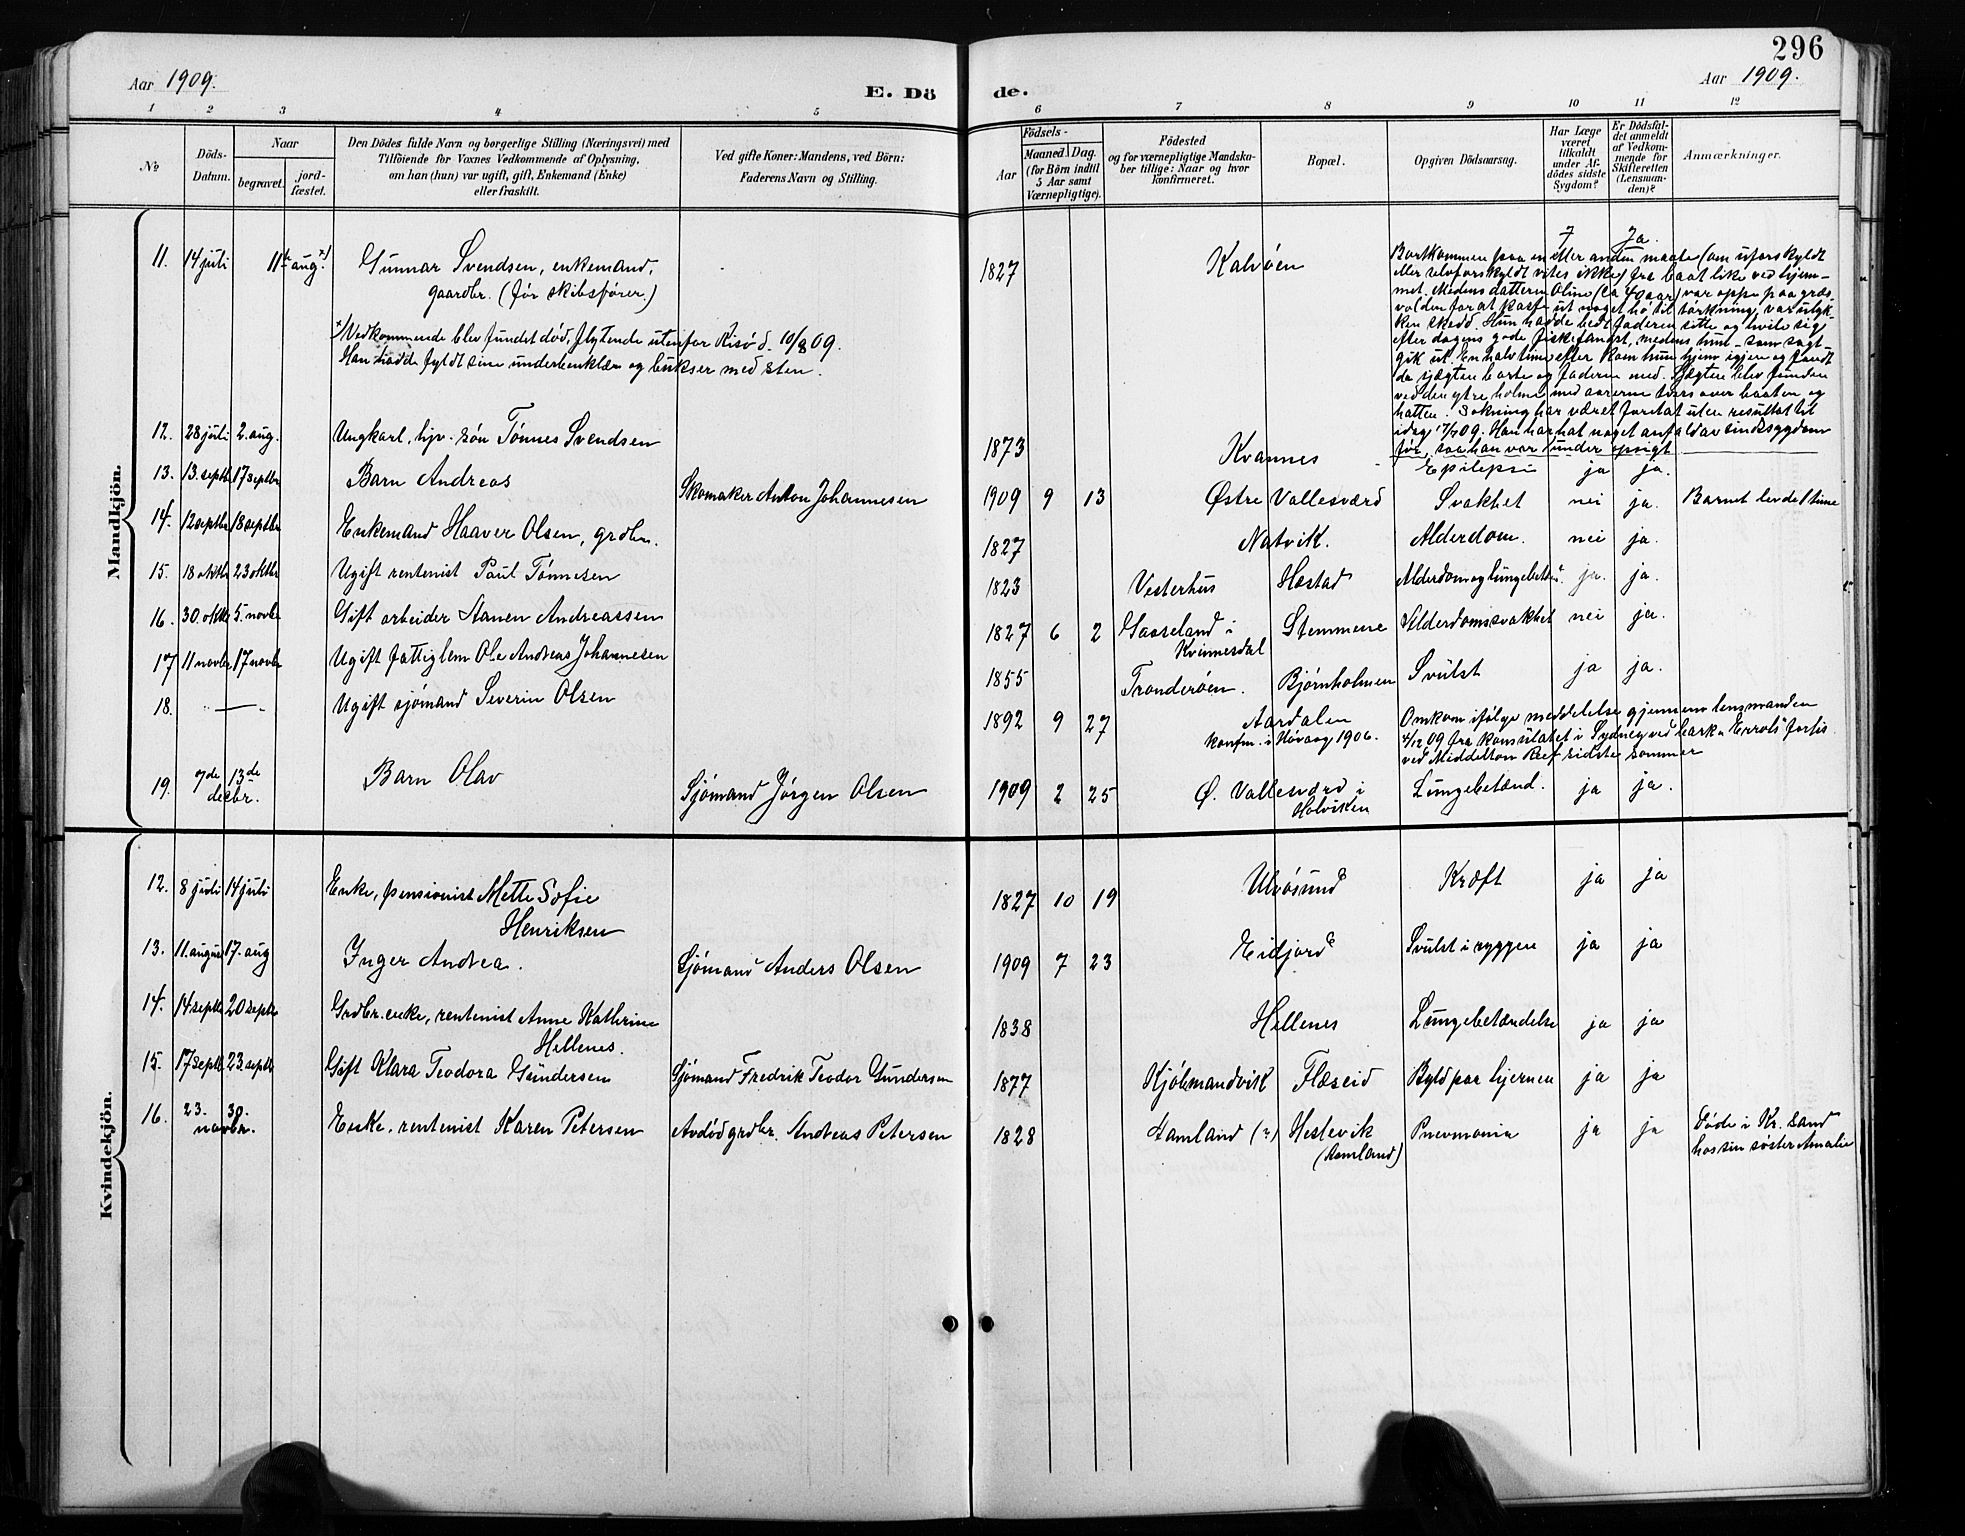 296
Aar 1909.
E. Dö
de.
Aar 1909.
1 2 3 4 5 6 7 8 9 10 11 12
No
Döds-
Datum.
Naar
begravet.
jord-
fæstet.
Den Dödes fulde Navn og borgerlige Stilling (Næringsvei) med
Tilföiende for Voxnes Vedkommende af Oplysning,
om han (hun) var ugift, gift, Enkemand (Enke)
eller fraskilt.
Ved gifte Koner: Mandens, ved Börn:
Faderens Navn og Stilling.
Födsels-
Aar
Maaned. Dag.
(for Börn indtil
5 Aar samt
Værnepligtige).
Födested
og for værnepligtige Mandska-
ber tillige: Naar og hvor
konfirmeret.
Bopæl.
Opgiven Dödsaarsag.
Har Læge
været
tilkaldt
under Af-
dödes sidste
Sygdom?
Er Dödsfal-
det anmeldt
af Vedkom-
mende for
Skifteretten
(Lensman-
den)?
Anmærkninger.
Mandkjön.
11. 14 juli 11te aug. x) Gunnar Svendsen, enkemand, 1827 Kalvøen
gaardbr. (før skibsfører.)
x) Vedkommende blev fundet død, flytende utenfor Risø d. 10/8 09.
Han hadde fyldt sine underbenklær og bukser med sten.
7 Ja.
Bortkommen paa en eller anden maate (om uforskyldt
eller selvforskyldt vites ikke) fra baat like ved hjem-
met. Medens datteren Oline (ca 40 aar) var oppe paa græs-
volden for at kaste ut noget hø til tørkning, var ulyk-
ken skedd. Hun hadde bedt faderen sitte og hvile sig
efter dagens gode fiskefangst, medens hun - som sagt -
gik ut. En halv time efter kom hun hjem igjen og fandt
da sjægten borte og faderen med. Sjægten blev funden
ved den ytre holme med aarerne tvers over baaten og
hatten. Søkning har været foretat uten resultat til
idag 17/7 09. Han har hat noget anfald av sindssygdom
før, saa han var under opsigt
12. 28 juli 2. aug. Ungkarl, hjv. søn Tønnes Svendsen 1873 Kvannes Epilepsi ja ja.
13. 13. septbr 17 septbr Barn Andreas Skomaker Anton Johannesen 1909 9 13 Østre Vallesværd Svakhet nei ja. Barnet levde 1 time
14. 12 septbr 18 septbr Enkemand Haaver Olsen, grdbr. 1827 Natvik. Alderdom. nei ja.
15. 18 oktbr 23 oktbr Ugift rentenist Paul Tønnesen 1823 Vesterhus Hæstad Alderdom og lungebetæn. ja. ja.
16. 30. oktbr 5. novbr Gift arbeider Aanen Andreassen 1827 6 2 Gaaseland i Stemmene Alderdomssvakhet nei ja.
Kvinnesdal
17 11 novbr. 17 novbr Ugift fattiglem Ole Andreas Johannesen 1855 Tronderøen. Bjørnholmen Svulst ja ja.
18. — Ugift sjømand Severin Olsen 1892 9 27 Aardalen
konfm. i Høvaag 1906.
Omkom ifølge meddelelse gjennem lensmanden
4/12 09 fra konsulatet i Sydney ved bark "Errols" forlis
ved Middelton Reef sidste sommer
19. 7de 13de decbr. Barn Olav Sjømand Jørgen Olsen 1909 2 25 Ø. Vallesværd i Lungebetænd. ja ja.
Holviken
Kvindekjön.
12. 8 juli 14 juli Enke, pensionist Mette Sofie 1827 10 19 Ulvøsund Kræft ja ja
Henriksen
13. 11. august 17. aug Inger Andrea. Sjømand Anders Olsen 1909 7 23 Eidjord Svulst i ryggen ja ja
14. 14 septbr 20 septbr Grdbr. enke, rentenist Anne Kathrine 1838 Hellenes Lungebetændelse ja ja
Hellenes.
15. 17 septbr 23. septbr Gift Klara Teodora Gundersen Sjømand Fredrik Teodor Gundersen 1877 Kjøbmandvik Flæseid Byld paa hjernen ja ja
16. 23. 30. novbr. Enke, rentenist Karen Petersen Avdød grdbr. Andreas Petersen 1828 Aamland (?) Heslevik Pnevmonia ja ja Døde i Kr.sand
(Aamland) hos sin søster Amalie